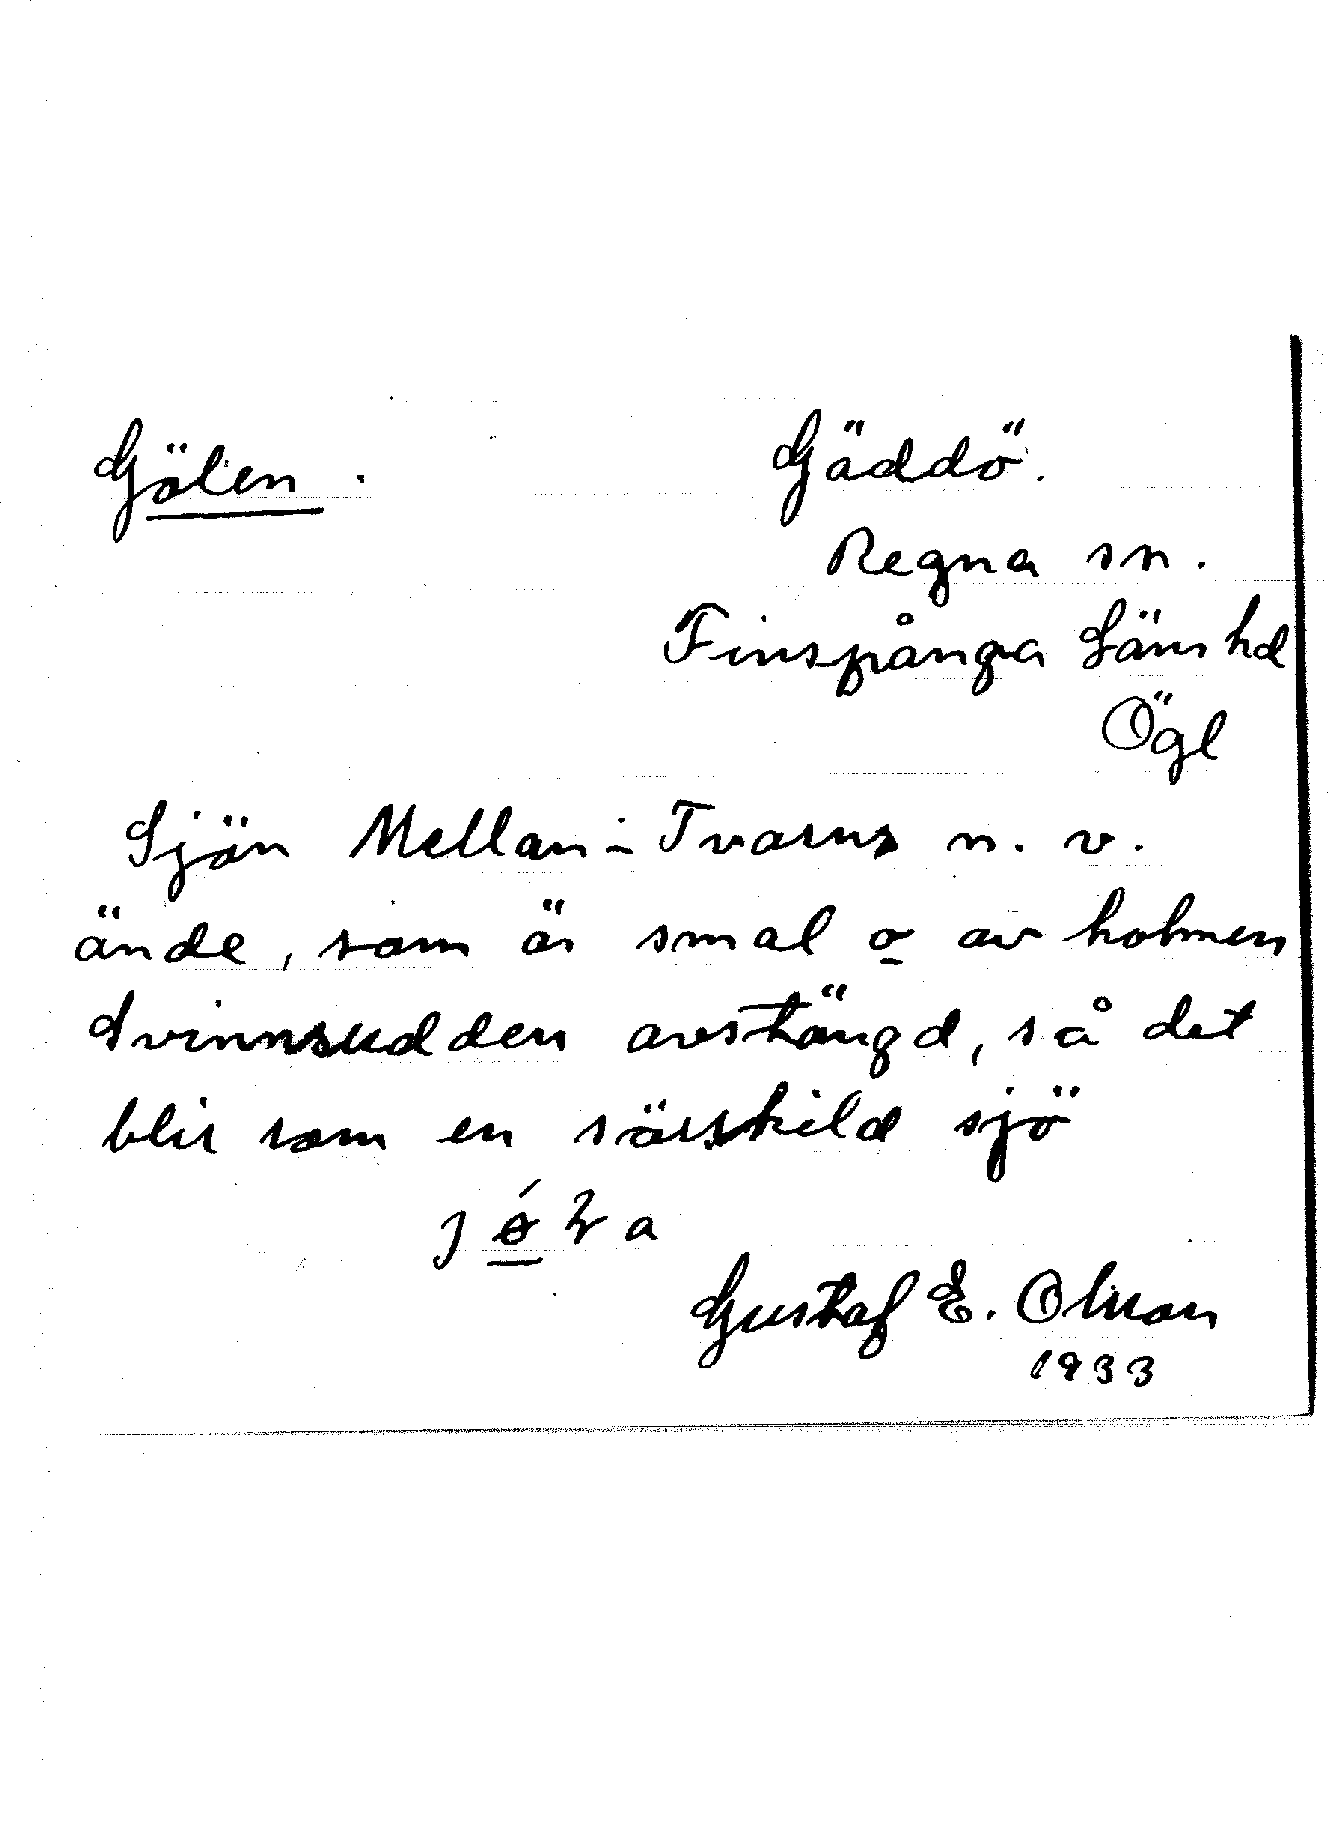 Gölen.
Gäddö.
Regna sn.
Finspånga Läns hd
Ögl
Sjön Mellan-Tvarns n. v.
ände, som är smal o av holmen
Svinnsudden avstängd, så det
blir som en särskild sjö
Gustaf E. Olsson
1933